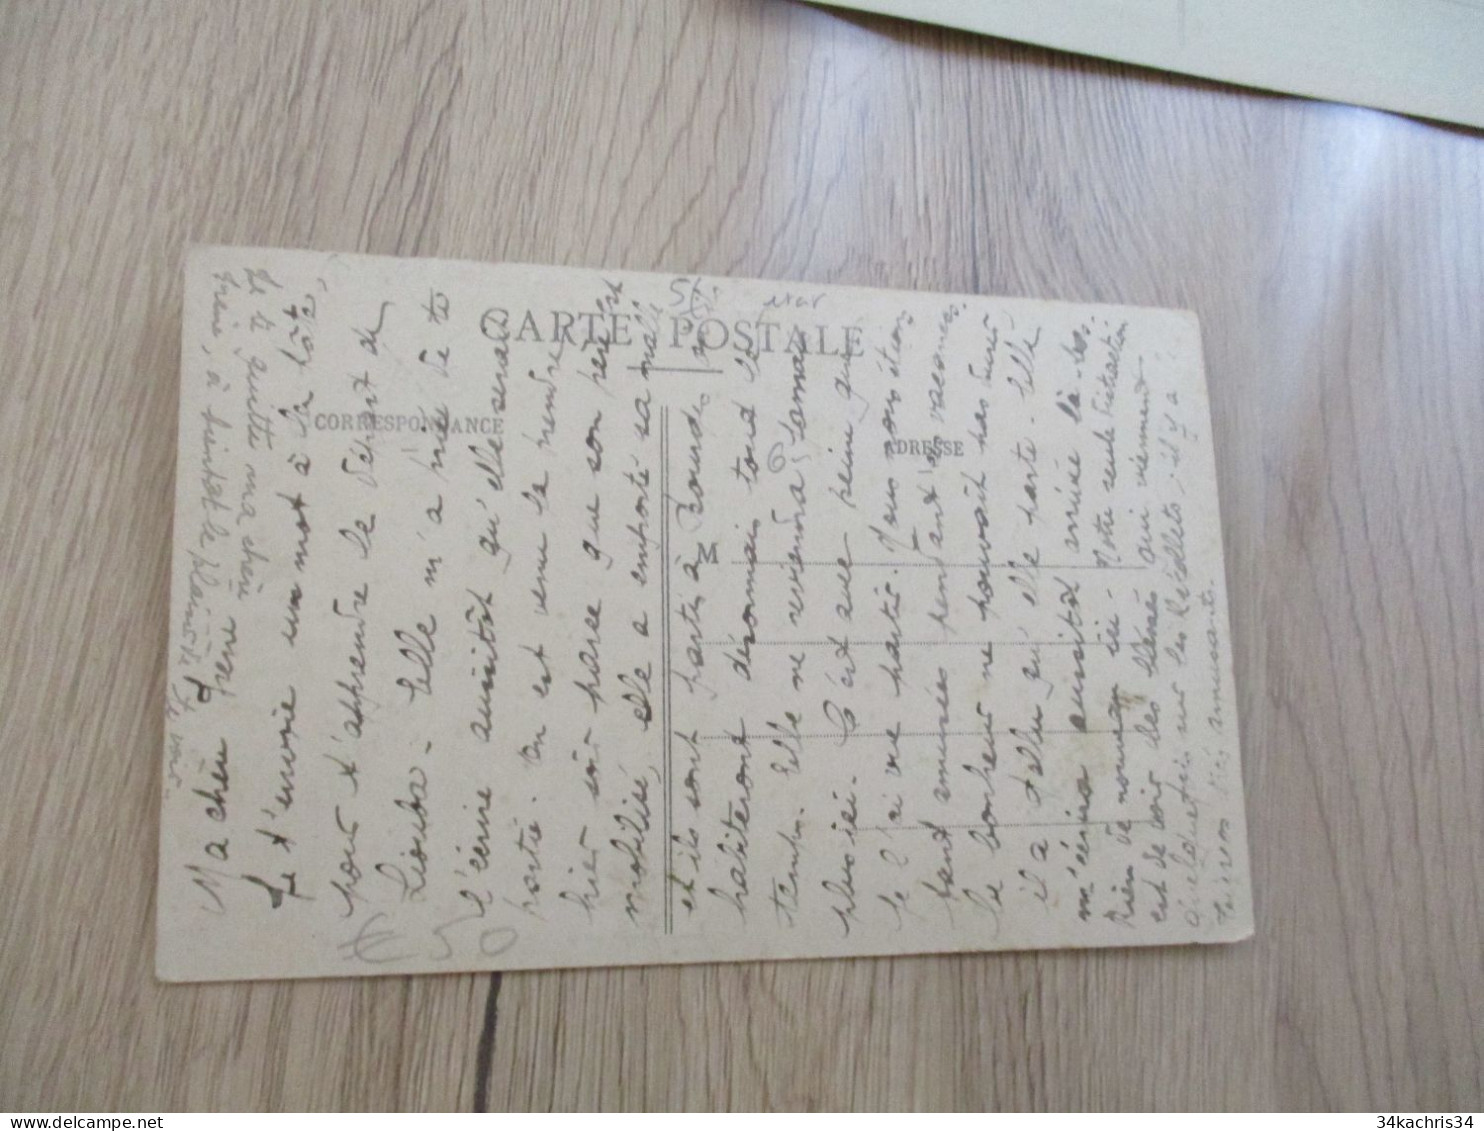 CARTE POSTALE
CORRESPONDANCE
ADRESSE
M
Ma chère Irène
Je t'envoie un mot à la hâte
pour t'apprendre le départ de
Liouba. Elle m'a priée de te
l'écrire aussitôt qu'elle serait
partie. On est venu la prendre
hier soir parce que son père est
mobilisé, elle a emporté sa malle
et ils sont partis à
habiteront désormais tout le
temps. Elle ne reviendra jamais
plus ici. C'est avec peine que
je l'ai vue partir. Nous nous étions
tant amusées pendant les vacances.
Le bonheur ne pouvait pas durer
il a fallu qu'elle parte. Elle
m'écrira aussitôt arrivée là-bas.
Rien de nouveau ici. Notre seule distraction
est de voir des blessés qui viennent
quelquefois sur les il y a
très amusants.
Je te quitte ma chère
Irène, à bientôt le plaisir de te voir
€ 50
34kachris34